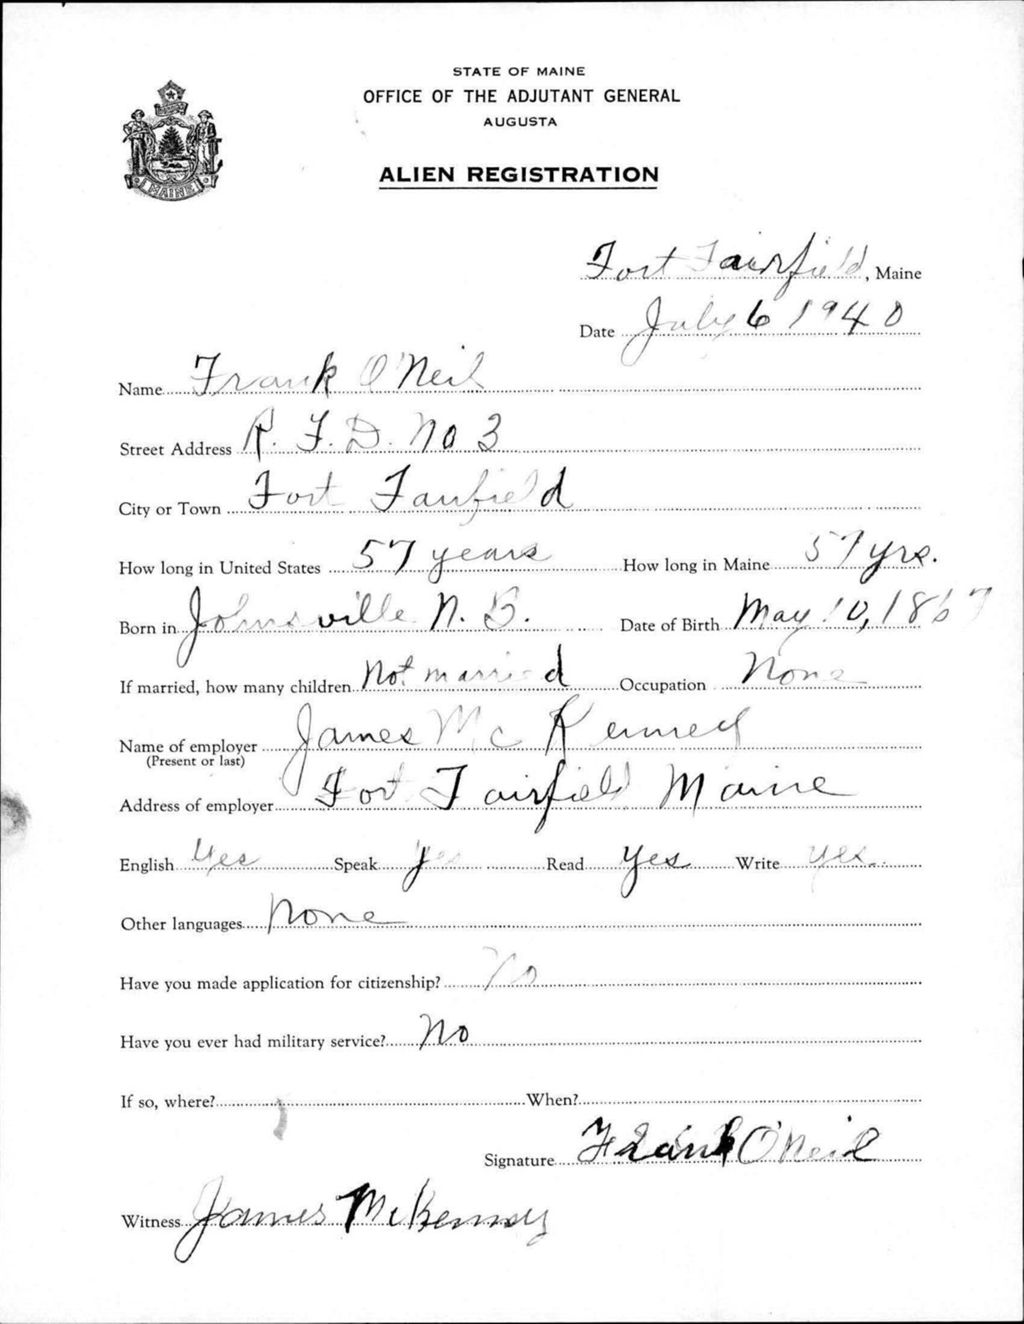 STATE OF MAINE
OFFICE OF THE ADJUTANT GENERAL
AUGUSTA
ALIEN REGISTRATION
MAINE
Fort Fairfield, Maine
Date July 6 1940
Name Frank O'Neil
Street Address R. F. D. No 3
City or Town Fort Fairfield
How long in United States 57 years How long in Maine 57 yrs.
Born in Johnsville N. B. Date of Birth May 10, 1867
If married, how many children Not married Occupation None
Name of employer James Mc
(Present or last)
Address of employer Fort Fairfield Maine
English Yes Speak yes Read yes Write yes
Other languages None
Have you made application for citizenship? No
Have you ever had military service? No
If so, where? When?
Signature Frank O'Neil
Witness James